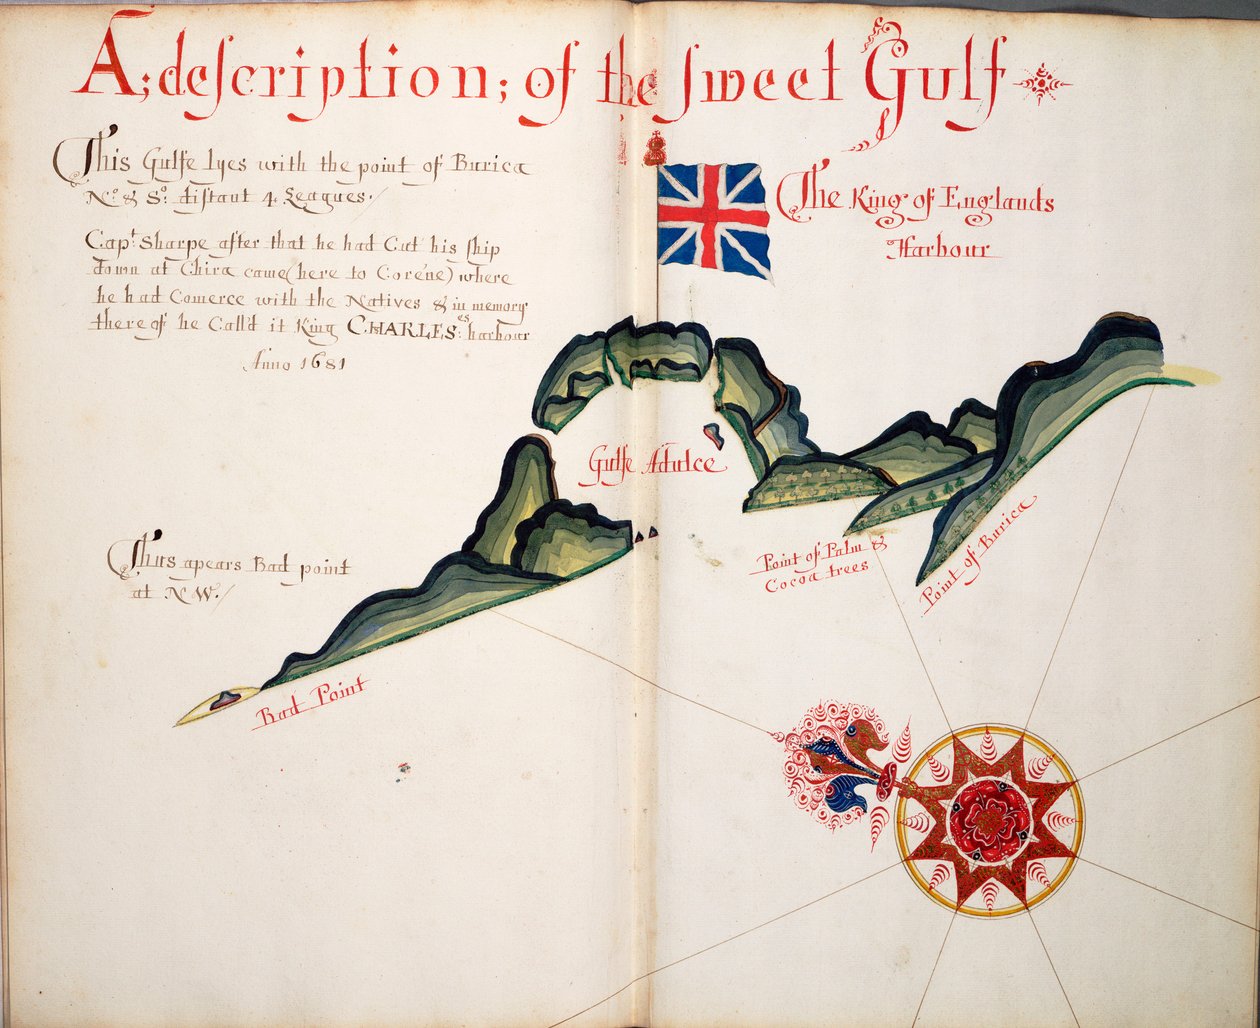 A; description; of the sweet Gulf
This Gulfe lyes with the point of Burica
No. & So. distant 4. Leagues.
Capt. Sharpe after that he had Cut his ship
down at Chira came (here to Corēne) where
he had Comerce with the Natives & in memory
there of he Call'd it King CHARLES:es harbour
Anno 1681
The King of Englands
Harbour
Gulfe Adulce
Thus apears Bad point
at N W.
Point of Palm &
Cocoa trees
Point of Burica
Bad Point